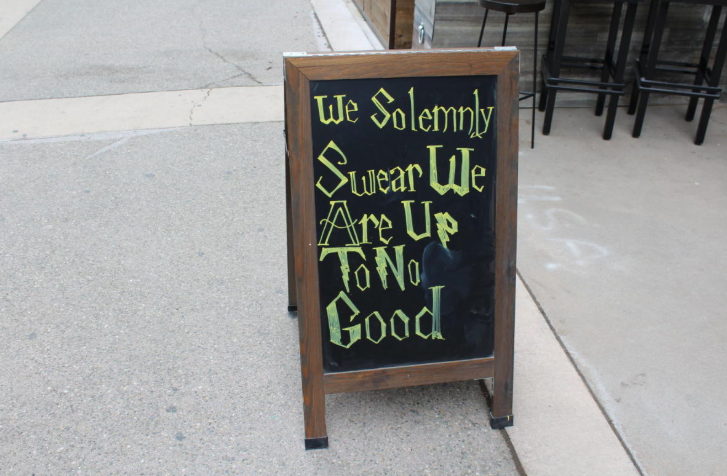 We Solemnly
Swear We
Are Up
To No
Good